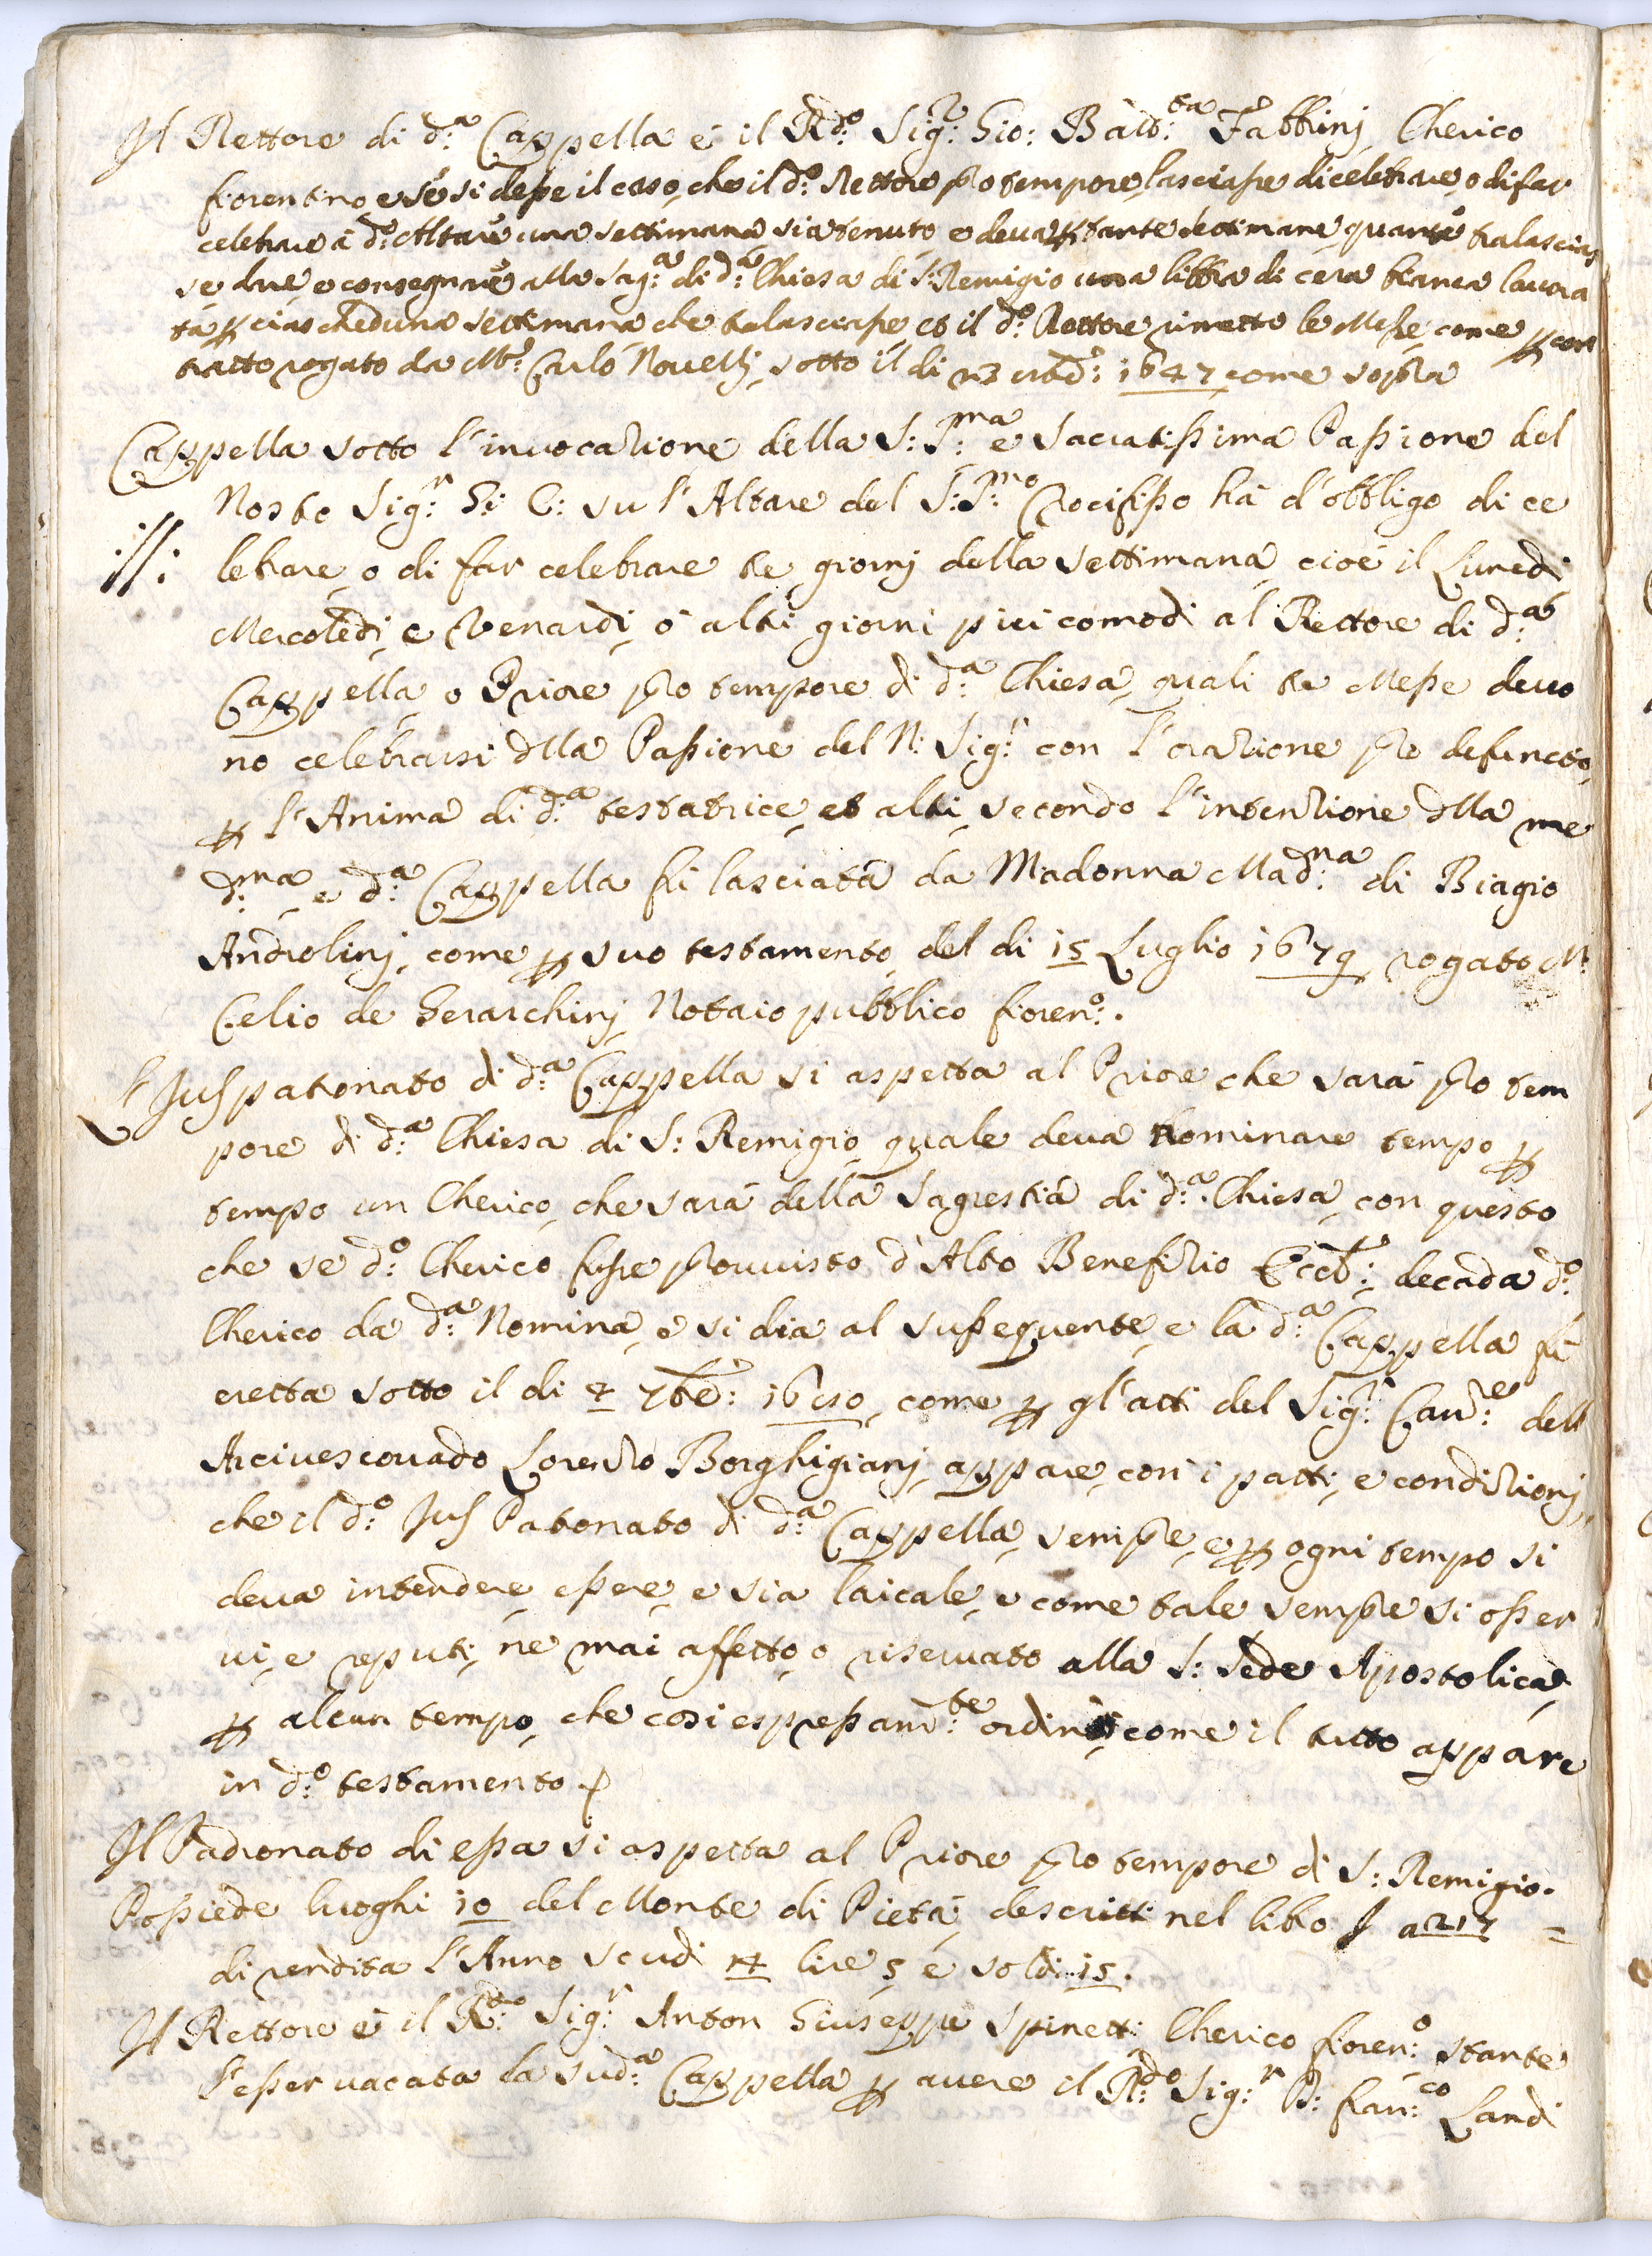 Il Rettore di d:ª Cappella è il R:do Sig:r Gio: Batt:ta Fabbrinj Cherico
fiorentino e se si desse il caso, che il d:º Rettore pro tempore, lasciasse di celebrare, o di far
celebrare à d:º Altare una settimana sia tenuto e deva p tante settimane quante tralascias
se dare, e consegnare alla Sag:ª di d:ª Chiesa di S: Remigio una libbra di cera bianca lavora
ta p ciascheduna settimana che tralasciasse, et il d:º Rettore rimette le Messe come p con
tratto rogato da M:r Carlo Novellj sotto il di 1647 come sopra
Cappella sotto l'invocazione della S:S:ma e Sacratissima Passione del
Nostro Sig:r G: C: su l'Altare del S:S:mo Crocifisso hà d'obbligo di ce
lebrare, o di far celebrare tre giornj della settimana, cioè il Lunedi
Mercoledi, e Venardi, ò altri giorni più comodi al Rettore di d:ª
Cappella o Priore pro tempore di d:ª Chiesa, quali tre Messe devo
no celebrarsi dlla Passione del N: Sig:r con l'orazione pro defuncto,
p l'Anima di d:ª testatrice, et altri, secondo l'intenzione dlla me
d:ma e d:ª Cappella fù lasciata da Madonna Madd:na di Biagio
Androlinj, come p suo testamento del di 15 Luglio 1679 rogato M:
Celio de Gerarchinj Notaio pubblico fioren:º.
L'Juspatronato di d:ª Cappella si aspetta al Priore che sarà pro tem
pore di d:ª Chiesa di S: Remigio, quale deva nominare tempo p
tempo un Cherico, che sarà della Sagrestia di d:ª Chiesa, con questo
che se d:º Cherico fusse provvisto d'Altro Benefizio Eccl: decada d:º
Cherico da d:ª Nomina, e si dia al sussequente, e la d:ª Cappella fù
eretta sotto il di 7bre: come p gl'atti del Sig:r Can:re dell
Arcivescovado Lorenzo Borghigianj appare, con i patti, e condizionj,
che il d:º Jus Patronato di d:ª Cappella, sempre, e p ogni tempo si
deva intendere, essere, e sia laicale, e come tale sempre si osser
vi, e reputi, ne mai affetto, o riservato alla S: Sede Apostolica,
p alcun tempo, che così espressam:te ordinò, come il tutto appare
in d:º testamento.
Il Padronato di essa si aspetta al Priore pro tempore di S: Remigio.
Possiede luoghi 10 del Monte di Pietà, descritti nel libro a 217 =
di rendita l'Anno scudi 14 lire 5 e soldi 15.
Il Rettore è il R:do Sig:r Anton Giuseppe Spinetti Cherico fioren:º stante
l'esser vacata la sud:ª Cappella p avere il R:do Sig:r P: fran:co Landi